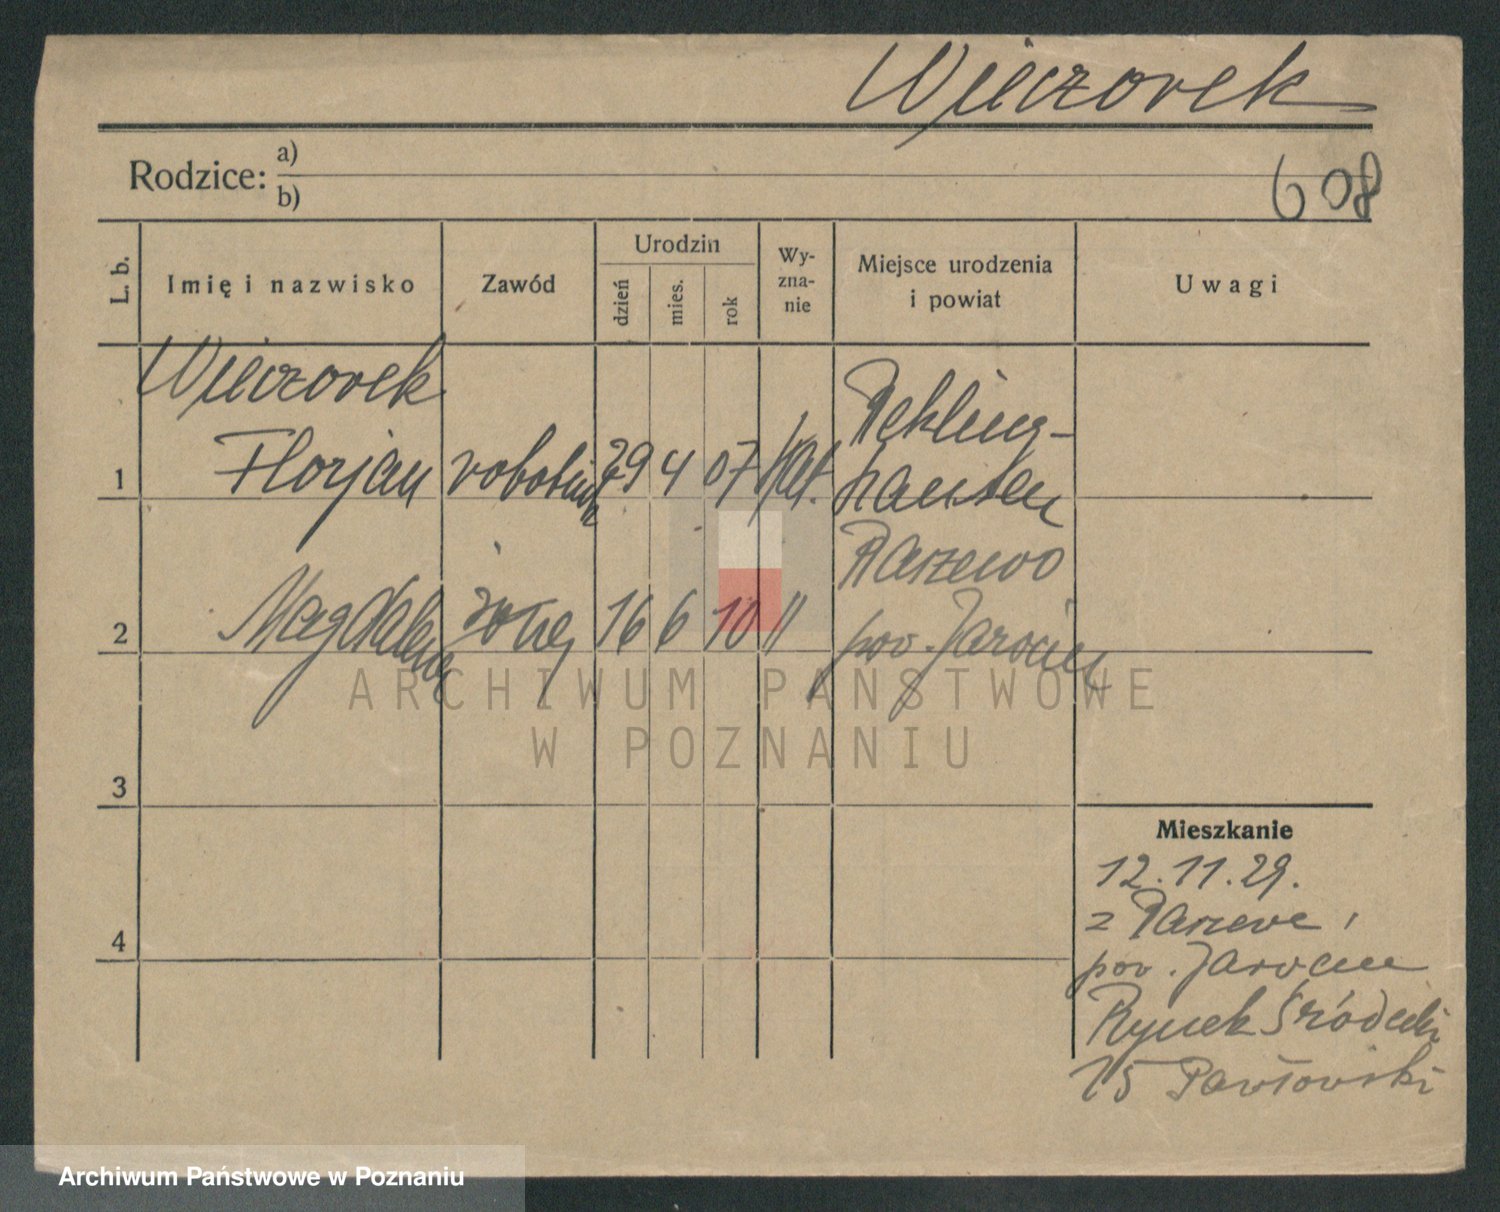 Wieczorek
Rodzice: a)
b)
608
L. b.
Imię i nazwisko
Zawód
Urodzin
dzień
mies.
rok
Wy-
zna-
nie
Miejsce urodzenia
i powiat
Uwagi
Wieczorek
1 Florjan robotnik 29 4 07 kat.
Rekling-
hausen
2 Magdalena żona 16 6 10 "
Raszewo
pow. Jarocin
ARCHIWUM PAŃSTWOWE
W POZNANIU
3
4
Mieszkanie
12.11.29.
z
pow. Jarocin
Rynek Śródecki
15 Pawłowski
Archiwum Państwowe w Poznaniu